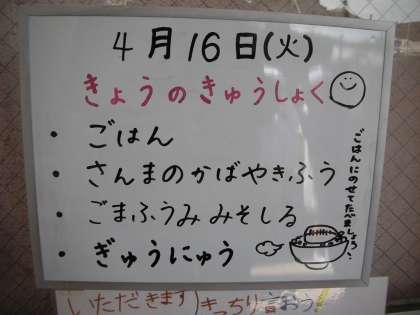 4月16日(火)
きょうのきゅうしょく
・ごはん
・さんまのかばやきふう
・ごまふうみみそしる
・ぎゅうにゅう
ごはんにのせてたべましょう、
いただきます)きっちり言おう!